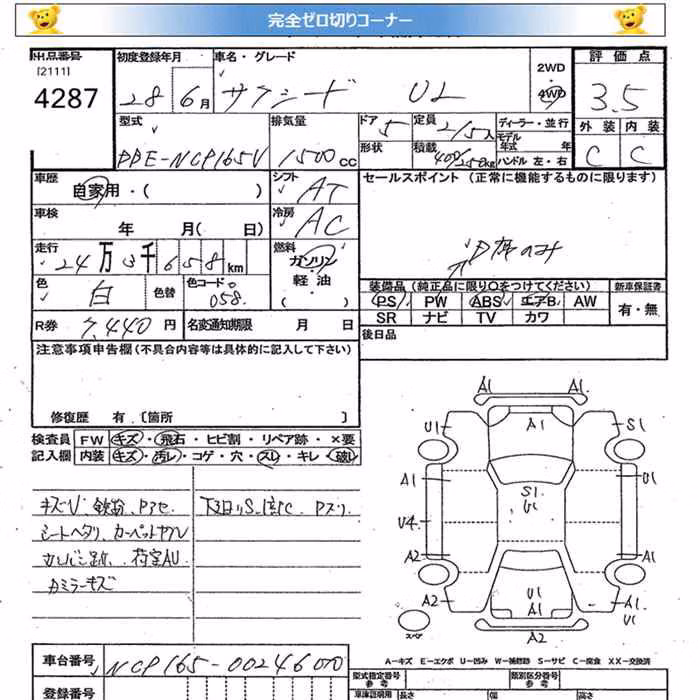 完全ゼロ切りコーナー
出品番号
[2111]
4287
初度登録年月
28 6月
車名・グレード
サクシード UL
2WD
・
4WD
評価点
3.5
外装 内装
C C
型式
DBE-NCP165V
排気量
1500cc
ドア 5
形状
定員 2/5人
積載 400/250kg
ディーラー・並行
モデル
年式 年
ハンドル 左・右
車歴
自家用・( )
シフト
AT
車検
年 月( 日)
冷房
AC
走行
24万3千658km
燃料
ガソリン
・
軽油
・( )
色
白
色替
色コードo
058
R券 7,440円
名変通知期限 月 日
セールスポイント (正常に機能するものに限ります)
D席のみ
装備品(純正品に限り○をつけてください)
新車保証書
PS PW ABS エアB. AW
有・無
SR ナビ TV カワ
後日品
注意事項申告欄(不具合内容等は具体的に記入して下さい)
修復歴 有 [箇所 ]
検査員 FW キズ・飛石・ヒビ割・リペア跡・×要
記入欄 内装 キズ・汚レ・コゲ・穴・スレ・キレ・破レ
キズU、鉄粉、
下廻りS
シートヘタリ、カーペット
荷室AU
ミラーキズ
A1 A1
A1
U1 S1
A1 U1
S1
U1
U4
A2 A1
U1
A1
A2 A1
U1
A2
スペア
A-キズ E-エクボ U-凹み W-補修跡 S-サビ C-腐食 XX-交換済
車台番号 NCP165-0024600
登録番号
型式指定番号
参考
類別区分番号
参考
車庫証明用
長さ 幅 高さ